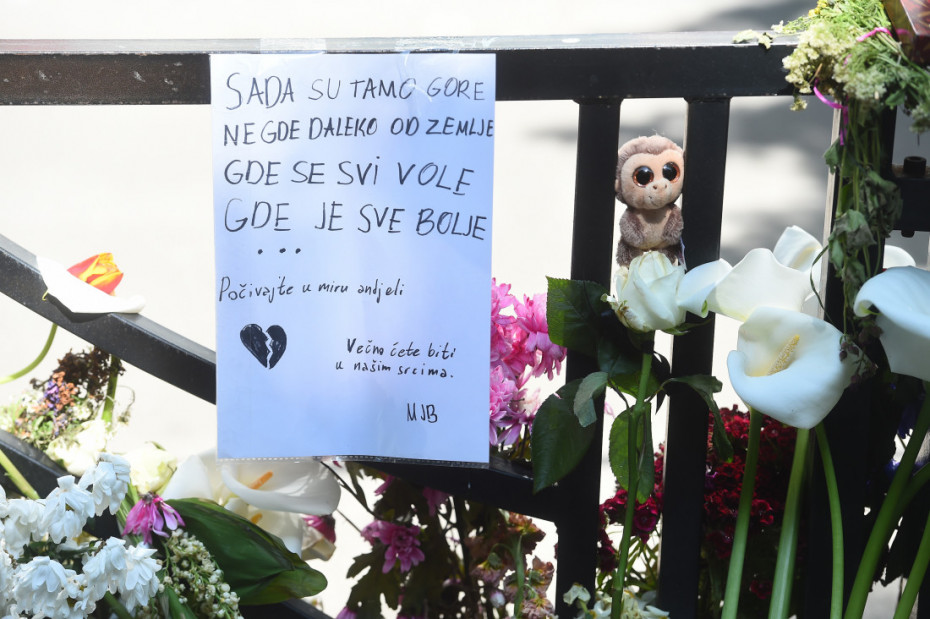 SADA SU TAMO GORE
NEGDE DALEKO OD ZEMLJE
GDE SE SVI VOLE
GDE JE SVE BOLJE
...
Počivajte u miru andjeli
Večno ćete biti
u našim srcima.
MJB